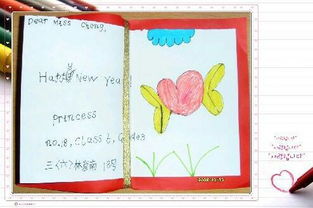 Dear Miss Chong,
Happy New year!
princess
no.18, class 6, Grade3
三(六) 林 南 18号